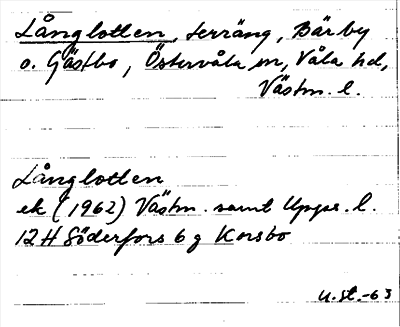 Långlotten, terräng, Bärby
o. Gästbo, Östervåla sn, Våla hd,
Västm. l.
Långlotten
ek (1962) Västm. samt Upps. l.
12H Söderfors 6 g Korsbo
U.St.-63